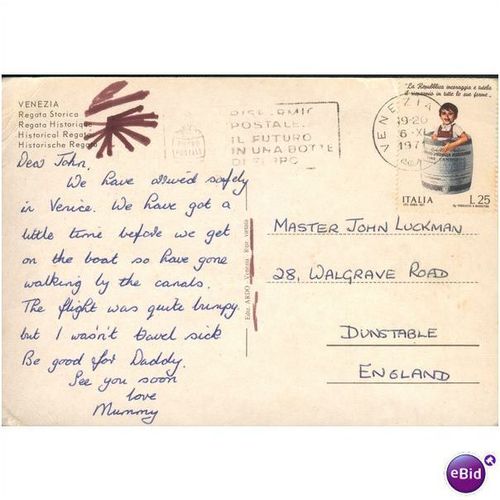 VENEZIA
Regata Storica
Regata Historique
Historical Regata
Historische Regata
Dear John,
We have arrived safely
in Venice. We have got a
little time before we get
on the boat so have gone
walking by the canals.
The flight was quite bumpy
but I wasn't travel sick
Be good for Daddy.
See you soon
love
Mummy
Ediz. ARDO Venezia
RISPARMIO
POSTALE
IL FUTURO
IN UNA BOTTE
DI FERRO
VENEZIA
19-20
6-XI
197
"La Repubblica incoraggia e tutela
il risparmio in tutte le sue forme"
ITALIA
L.25
MASTER JOHN LUCKMAN
28, WALGRAVE ROAD
DUNSTABLE
ENGLAND
eBid